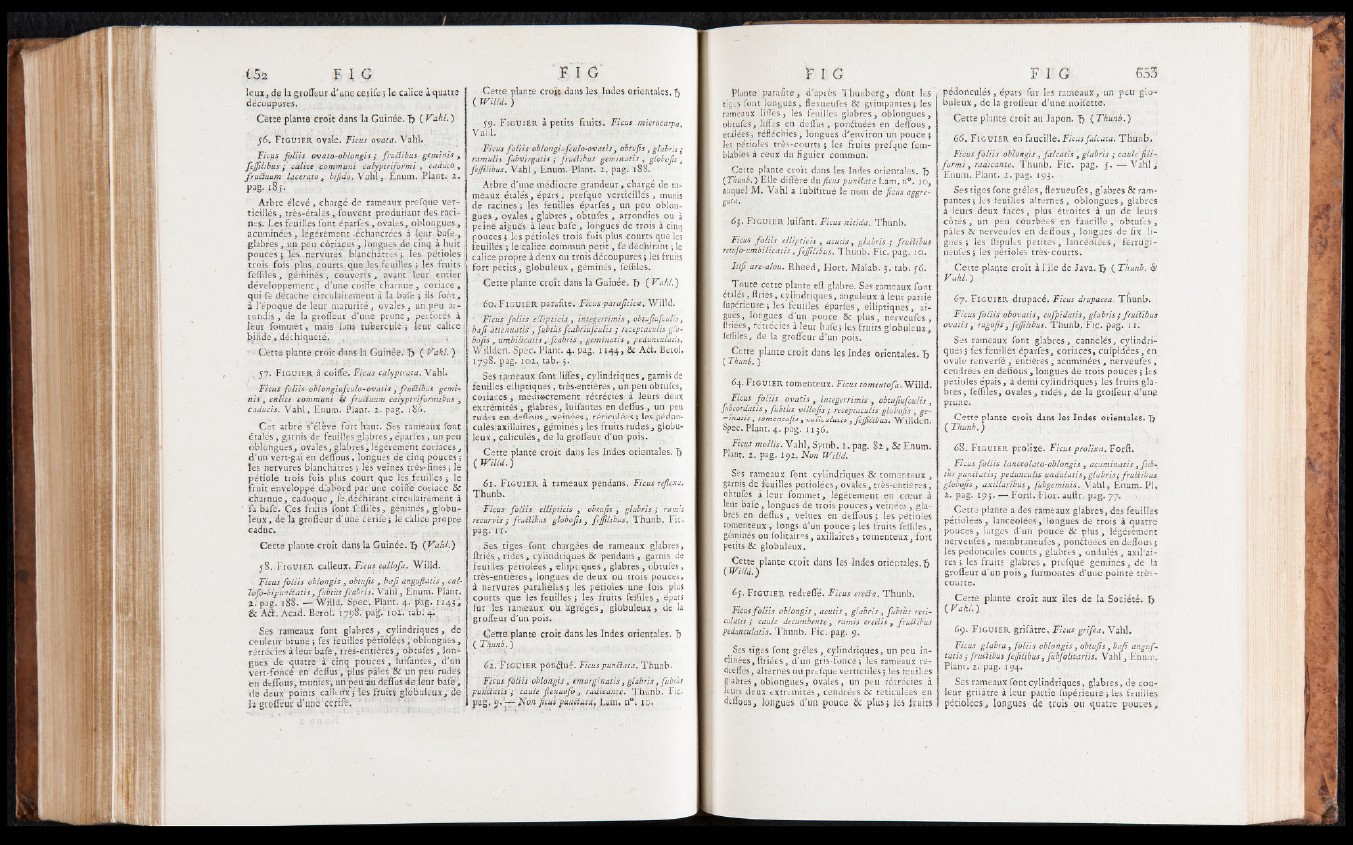 652 FIG
leux, de la grosseur d'une cerise; le calice à quatre
découpures.
Cette plante croît dans la Guinée. ♄ (Vahl.)
56. FIGUIER ovale. Ficus ovata. Vahl.
Ficus foliis ovato-oblongis; fructibus geminis,
sessilibus; calice communi calyptriformi, caduco,
fructuum lacerato, bifido. Vahl, Enum. Plant. 2.
pag. 185.
Arbre élevé, chargé de rameaux presque ver-
ticillés, très-étalés, souvent produisant des raci-
nes. Les feuilles sont éparses, ovales, oblongues,
acuminées, légérement échancrées à leur base,
glabres, un peu coriaces, longues de cinq à huit
pouces; les nervures blanchâtres; les pétioles
trois fois plus courts que les feuilles; les fruits
sessiles, géminés; couverts, avant leur entier
développement, d'une coiffe charnue, coriace,
qui se détache circulairement à la base; ils sont,
à l'époque de leur maturité, ovales, un peu ar-
rondis, de la grosseur d'une prune, perforés à
leur sommet, mais sans tubercule; leur calice
bifide, déchiqueté.
Cette plante croît dans la Guinée. ♄ (Vahl.)
57. FIGUIER à coiffe. Ficus calyptrata. Vahl.
Ficus foliis oblongiusculo-ovatis, fructibus gemi-
nis, calice communi & fructuum calyptriformibus,
caducis. Vahl, Enum. Plant. 2. pag. 186.
Cet arbre s'élève fort haut. Ses rameaux sont
étalés, garnis de feuilles glabres, éparses, un peu
oblongues, ovales, glabres, légérement coriaces,
d'un vert-gai en dessous, longues de cinq pouces;
les nervures blanchâtres; les veines très-fines; le
pétiole trois fois plus court que les feuilles; le
fruit enveloppé d'abord par une coiffe coriace &
charnue, caduque, se déchirant circulairement à
sa base. Ces fruits sont sessiles, géminés, globu-
leux, de la grosseur d'une cerise; le calice propre
caduc.
Cette plante croît dans la Guinée. ♄ (Vahl.)
58. FIGUIER calleux. Ficus callosa. Willd.
Ficus foliis oblongis, obtusis, basi angustatis, cal-
loso-bipunctatis, subtùs scabris. Vahl, Enum. Plant.
2. pag. 188. — Willd. Spec. Plant. 4. pag. 1143,
& Act. Acad. Berol. 1798. pag. 102. tab. 4.
Ses rameaux sont glabres, cylindriques, de
couleur brune; ses feuilles pétiolées, oblongues,
rétrécies à leur base, très-entières, obtuses, lon-
gues de quatre à cinq pouces, luisantes, d'un
vert-foncé en dessus, plus pâles & un peu rudes
en dessous, munies, un peu au dessus de leur base,
de deux points calleux; les fruits globuleux, de
la grosseur d'une cerise.
FIG
Cette plante croît dans les Indes orientales. ♄
(Willd.)
59. FIGUIER à petits fruits. Ficus microcarpa.
Vahl.
Ficus foliis oblongiusculo-ovatis, obtusis, glabris;
ramulis subvirgatis; fructibus geminatis, globosis,
sessilibus. Vahl, Enum. Plant. 2. pag. 188.
Arbre d'une médiocre grandeur, chargé de ra-
meaux étalés, épars, presque verticillés, munis
de racines; les feuilles éparses, un peu oblon-
gues, ovales, glabres, obtuses, arrondies ou à
peine aiguës à leur base, longues de trois à cinq
pouces; les pétioles trois fois plus courts que les
feuilles; le calice commun petit, se déchirant; le
calice propre à deux ou trois découpures; les fruits
fort petits, globuleux, géminés, sessiles.
Cette plante croît dans la Guinée. ♄ (Vahl.)
60. FIGUIER parasite. Ficus parasitica. Willd.
Ficus foliis ellipticis, integerrimis, obtusiusculis,
basi attenuatis, subtùs scabriusculis; receptaculis glo-
bosis, umbilicatis, scabris, geminatis, pedunculatis.
Willden. Spec. Plant. 4. pag. 1144, & Act. Berol.
1798. pag. 102. tab. 5.
Ses rameaux sont lisses, cylindriques, garnis de
feuilles elliptiques, très-entières, un peu obtuses,
coriaces, médiocrement rétrécies à leurs deux
extrémités, glabres, luisantes en dessus, un peu
rudes en dessous, veinées, réticulées; les pédon-
cules axillaires, géminés; les fruits rudes, globu-
leux, caliculés, de la grosseur d'un pois.
Cette plante croît dans les Indes orientales. ♄
(Willd.)
61. FIGUIER à rameaux pendans. Ficus reflexa.
Thunb.
Ficus foliis ellipticis, obtusis, glabris; ramis
recurvis; fructibus globosis, sessilibus. Thunb. Fic.
pag. 11.
Ses tiges sont chargées de rameaux glabres,
striés, ridés, cylindriques & pendans, garnis de
feuilles pétiolées, elliptiques, glabres, obtuses,
très-entières, longues de deux ou trois pouces,
à nervures parallèles; les pétioles une fois plus
courts que les feuilles; les fruits sessiles, épars
sur les rameaux ou agrégés, globuleux, de la
grosseur d'un pois.
Cette plante croît dans les Indes orientales. ♄
(Thunb.)
62. FIGUIER ponctué. Ficus punctata. Thunb.
Ficus foliis oblongis, emarginatis, glabris, subtùs
punctatis; caule flexuoso, radicante. Thunb. Fic.
pag. 9. — Non ficus punctata, Lam. n°. 10.
FIG
Plante parasite, d'après Thunberg, dont les
tiges sont longues, flexueuses & grimpantes; les
rameaux lisses, les feuilles glabres, oblongues,
obtuses, lisses en dessus, ponctuées en dessous,
étalées, réfléchies, longues d'environ un pouce;
les pétioles très-courts; les fruits presque sem-
blables à ceux du figuier commun.
Cette plante croît dans les Indes orientales. ♄
(Thunb.) Elle diffère du ficus punctata Lam. n°. 10,
auquel M. Vahl a substitué le nom de ficus aggre-
gata.
63. FIGUIER luisant. Ficus nitida. Thunb.
Ficus foliis ellipticis, acutis, glabris; fructibus
retuso-umbilicatis, sessilibus. Thunb. Fic. pag. 10.
Itti are-alou. Rheed, Hort. Malab. 3. tab. 56.
Toute cette plante est glabre. Ses rameaux sont
étalés, striés, cylindriques, anguleux à leur partie
supérieure; les feuilles éparses, elliptiques, ai-
gues, longues d'un pouce & plus, nerveuses,
striées, rétrécies à leur base; les fruits globuleux,
sessiles, de la grosseur d'un pois.
Cette plante croît dans les Indes orientales. ♄
(Thunb.)
64. FIGUIER tomenteux. Ficus tomentosa. Willd.
Ficus foliis ovatis, integerrimis, obtusiusculis,
subcordatis, subtùs villosis; receptaculis globosis, ge-
minatis, tomentosis, sessilibus. Willden.
Spec. Plant. 4. pag. 1136.
Ficus mollis. Vahl, Symb. 1. pag. 82, & Enum.
Plant. 2. pag. 192. Non Willd.
Ses rameaux sont cylindriques & tomenteux,
garnis de feuilles pétiolées, ovales, très-entières,
obtuses à leur sommet, légérement en cœur à
leur base, longues de trois pouces, veinées, gla-
bres en dessus, velues en dessous; les pétioles
tomenteux, longs d'un pouce; les fruits sessiles,
géminés ou solitaires, axillaires, tomenteux, fort
petits & globuleux.
Cette plante croît dans les Indes orientales. ♄
(Willd.)
65. FIGUIER redressé. Ficus erecta. Thunb.
Ficus foliis oblongis, acutis, glabris, subtùs reti-
culatis; caule decumbente, ramis erectis, fructibus
pedunculatis. Thunb. Fic. pag. 9.
Ses tiges sont grêles, cylindriques, un peu in-
clinées, striées, d'un gris-foncé; les rameaux re-
dressés, alternes ou presque verticillés; les feuilles
glabres, oblongues, ovales, un peu rétrécies à
leurs deux extrémités, cendrées & réticulées en
dessous, longues d'un pouce & plus; les fruits
FIG 653
pédonculés, épars sur les rameaux, un peu glo-
buleux, de la grosseur d'une noisette.
Cette plante croît au Japon. ♄ (Thunb.)
66. FIGUIER en faucille. Ficus falcata. Thunb.
Ficus foliis oblongis, falcatis, glabris; caule fili-
formi, radicante. Thunb. Fic. pag. 5. — Vahl,
Enum. Plant. 2. pag. 193.
Ses tiges sont grêles, flexueuses, glabres & ram-
pantes; les feuilles alternes, oblongues, glabres
à leurs deux faces, plus étroites à un de leurs
côtés, un peu courbées en faucille, obtuses,
pâles & nerveuses en dessous, longues de six li-
gnes; les stipules petites, lancéolées, ferrugi-
neuses; les pétioles très-courts.
Cette plante croît à l'île de Java. ♄ (Thunb. &
Vahl.)
67. FIGUIER drupacé. Ficus drupacea. Thunb.
Ficus foliis obovatis, cuspidatis, glabris; fructibus
ovatis, rugosis, sessilibus. Thunb. Fic. pag. 11.
Ses rameaux sont glabres, cannelés, cylindri-
ques; les feuilles éparses, coriaces, cuspidées, en
ovale renversé, entières, acuminées, nerveuses,
cendrées en dessous, longues de trois pouces; les
pétioles épais, à demi cylindriques; les fruits gla-
bres, sessiles, ovales, ridés, de la grosseur d'une
prune.
Cette plante croît dans les Indes orientales. ♄
(Thunb.)
68. FIGUIER prolixe. Ficus prolixa. Forst.
Ficus foliis lanceolato-oblongis, acuminatis, sub-
tùs punctatis; pedunculis undulatis, glabris; fructibus
globosis, axillaribus, subgeminis. Vahl, Enum. Pl.
2. pag. 193. — Forst. Flor. austr. pag. 77.
Cette plante a des rameaux glabres, des feuilles
pétiolées, lancéolées, longues de trois à quatre
pouces, larges d'un pouce & plus, légérement
nerveuses, membraneuses, ponctuées en dessous;
les pédoncules courts, glabres, ondulés, axillai-
res; les fruits glabres, presque géminés, de la
grosseur d'un pois, surmontés d'une pointe très-
courte.
Cette plante croît aux îles de la Société. ♄
(Vahl.)
69. FIGUIER grisâtre. Ficus grisea. Vahl.
Ficus glabra, foliis oblongis, obtusis, basi angus-
tatis; fructibus sessilibus, subsolitariis. Vahl, Enum.
Plant. 2. pag. 194.
Ses rameaux sont cylindriques, glabres, de cou-
leur grisâtre à leur partie supérieure; les feuilles
pétiolées, longues de trois ou quatre pouces,